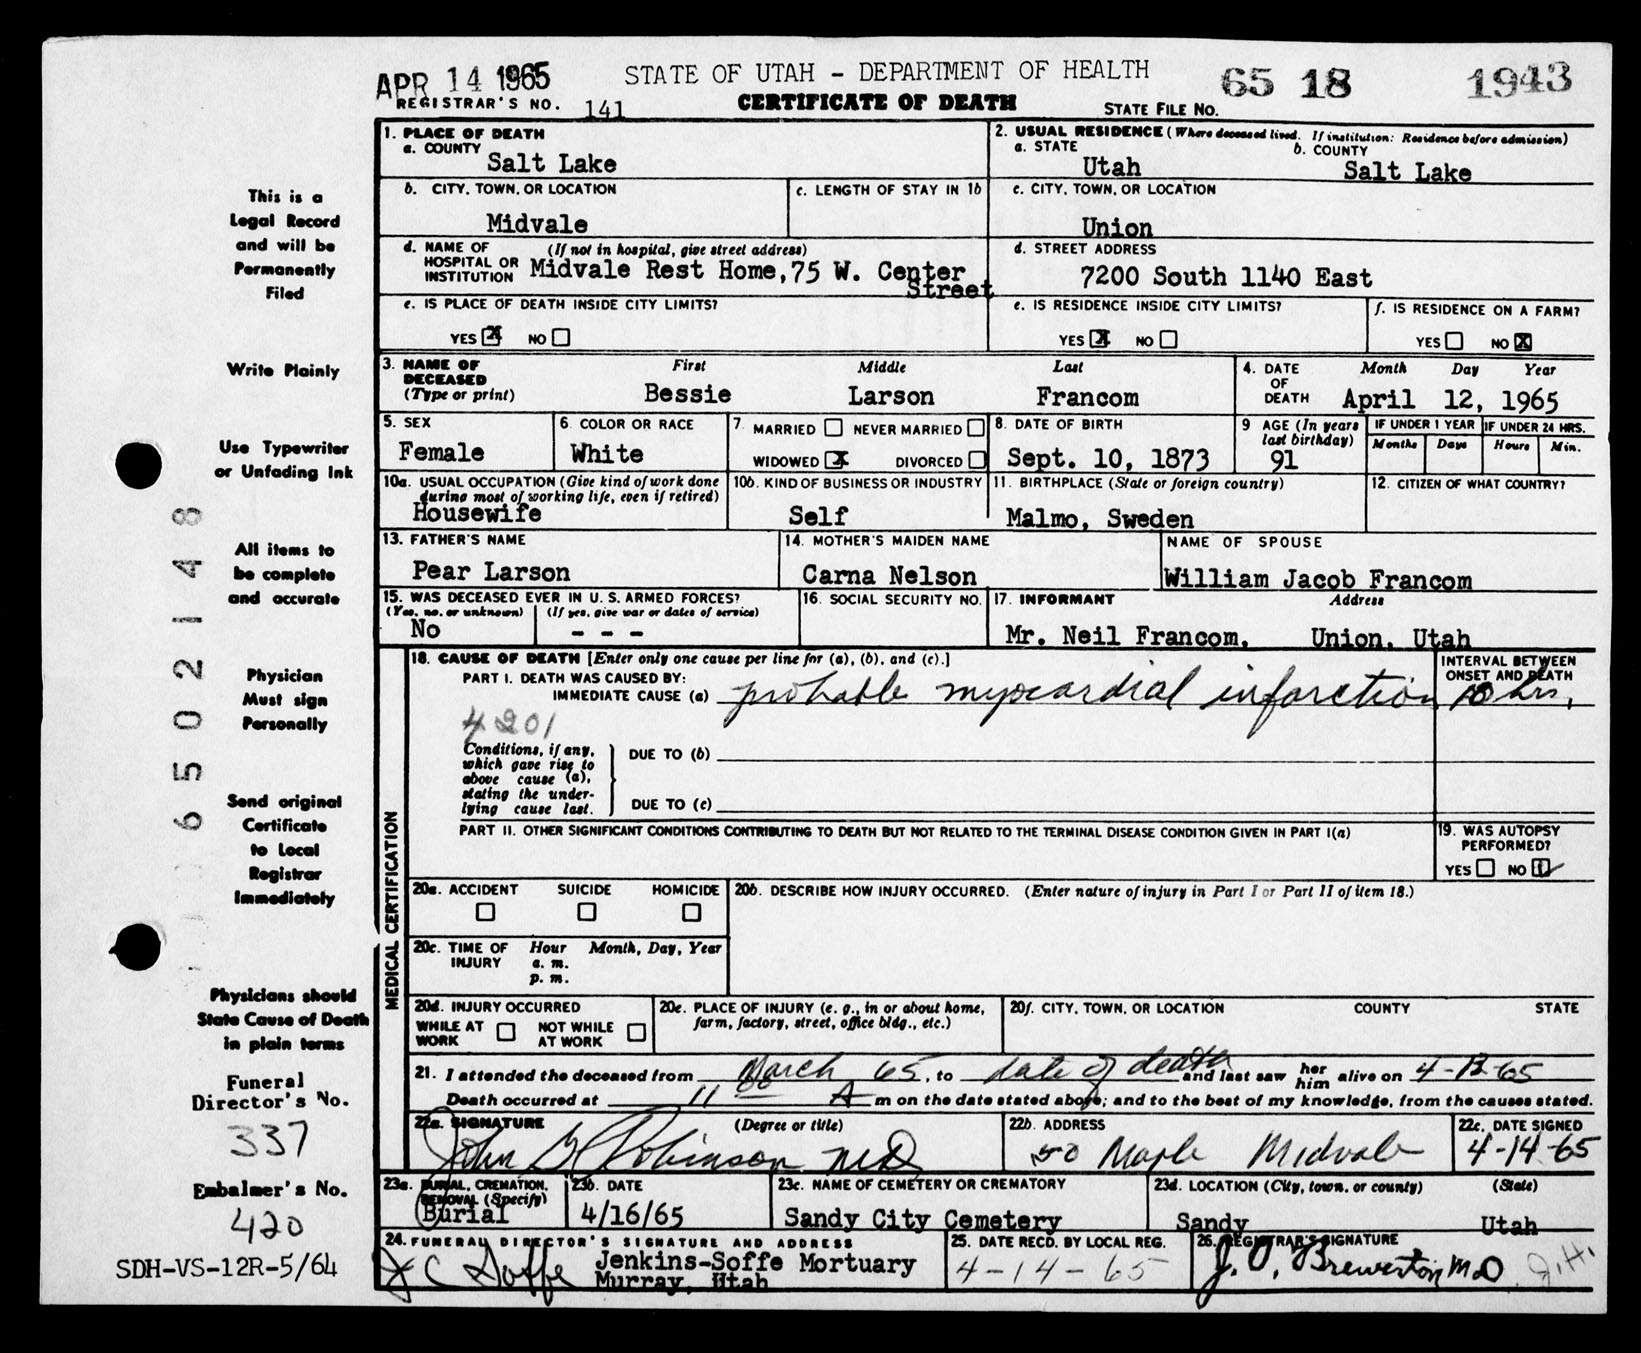 APR 14 1965 STATE OF UTAH - DEPARTMENT OF HEALTH 65 18 1943
REGISTRAR'S NO. 141 CERTIFICATE OF DEATH STATE FILE NO.
1. PLACE OF DEATH
a. COUNTY
Salt Lake
2. USUAL RESIDENCE (Where deceased lived. If institution: Residence before admission)
a. STATE b. COUNTY
Utah Salt Lake
b. CITY, TOWN, OR LOCATION
Midvale
c. LENGTH OF STAY IN 1b
c. CITY, TOWN, OR LOCATION
Union
d. NAME OF (If not in hospital, give street address)
HOSPITAL OR
INSTITUTION Midvale Rest Home, 75 W. Center
Street
d. STREET ADDRESS
7200 South 1140 East
e. IS PLACE OF DEATH INSIDE CITY LIMITS?
YES X NO
e. IS RESIDENCE INSIDE CITY LIMITS?
YES X NO
f. IS RESIDENCE ON A FARM?
YES NO X
3. NAME OF First Middle Last
DECEASED
(Type or print) Bessie Larson Francom
4. DATE Month Day Year
OF
DEATH April 12, 1965
5. SEX
Female
6. COLOR OR RACE
White
7. MARRIED NEVER MARRIED
WIDOWED X DIVORCED
8. DATE OF BIRTH
Sept. 10, 1873
9 AGE (In years
last birthday)
91
IF UNDER 1 YEAR
Months Days
IF UNDER 24 HRS.
Hours Min.
10a. USUAL OCCUPATION (Give kind of work done
during most of working life, even if retired)
Housewife
10b. KIND OF BUSINESS OR INDUSTRY
Self
11. BIRTHPLACE (State or foreign country)
Malmo, Sweden
12. CITIZEN OF WHAT COUNTRY?
13. FATHER'S NAME
Pear Larson
14. MOTHER'S MAIDEN NAME
Carna Nelson
NAME OF SPOUSE
William Jacob Francom
15. WAS DECEASED EVER IN U. S. ARMED FORCES?
(Yes, no, or unknown) (If yes, give war or dates of service)
No - - -
16. SOCIAL SECURITY NO.
17. INFORMANT Address
Mr. Neil Francom, Union, Utah
MEDICAL CERTIFICATION
18. CAUSE OF DEATH [Enter only one cause per line for (a), (b), and (c).]
PART I. DEATH WAS CAUSED BY:
IMMEDIATE CAUSE (a) probable myocardial infarction
INTERVAL BETWEEN
ONSET AND DEATH
10 hrs.
4201
Conditions, if any,
which gave rise to
above cause (a),
stating the under-
lying cause last.
DUE TO (b)
DUE TO (c)
PART II. OTHER SIGNIFICANT CONDITIONS CONTRIBUTING TO DEATH BUT NOT RELATED TO THE TERMINAL DISEASE CONDITION GIVEN IN PART I(a)
19. WAS AUTOPSY
PERFORMED?
YES NO
20a. ACCIDENT SUICIDE HOMICIDE
20b. DESCRIBE HOW INJURY OCCURRED. (Enter nature of injury in Part I or Part II of item 18.)
20c. TIME OF Hour Month, Day, Year
INJURY a. m.
p. m.
20d. INJURY OCCURRED
WHILE AT WORK NOT WHILE AT WORK
20e. PLACE OF INJURY (e. g., in or about home,
farm, factory, street, office bldg., etc.)
20f. CITY, TOWN, OR LOCATION COUNTY STATE
21. I attended the deceased from March 65, to date of death and last saw her him alive on 4-12-65
Death occurred at 11 00 A m on the date stated above; and to the best of my knowledge, from the causes stated.
22a. SIGNATURE (Degree or title)
John G Robinson MD
22b. ADDRESS
50 Maple Midvale
22c. DATE SIGNED
4-14-65
23a. BURIAL, CREMATION,
REMOVAL (Specify)
Burial
23b. DATE
4/16/65
23c. NAME OF CEMETERY OR CREMATORY
Sandy City Cemetery
23d. LOCATION (City, town, or county) (State)
Sandy Utah
24. FUNERAL DIRECTOR'S SIGNATURE AND ADDRESS
J C Soffe Jenkins-Soffe Mortuary
Murray, Utah
25. DATE RECD. BY LOCAL REG.
4-14-65
26. REGISTRAR'S SIGNATURE
J. O. Brewerton M.D J.H.
This is a
Legal Record
and will be
Permanently
Filed
Write Plainly
Use Typewriter
or Unfading Ink
All items to
be complete
and accurate
Physician
Must sign
Personally
Send original
Certificate
to Local
Registrar
Immediately
Physicians should
State Cause of Death
in plain terms
Funeral
Director's No.
337
Embalmer's No.
420
SDH-VS-12R-5/64
6502148